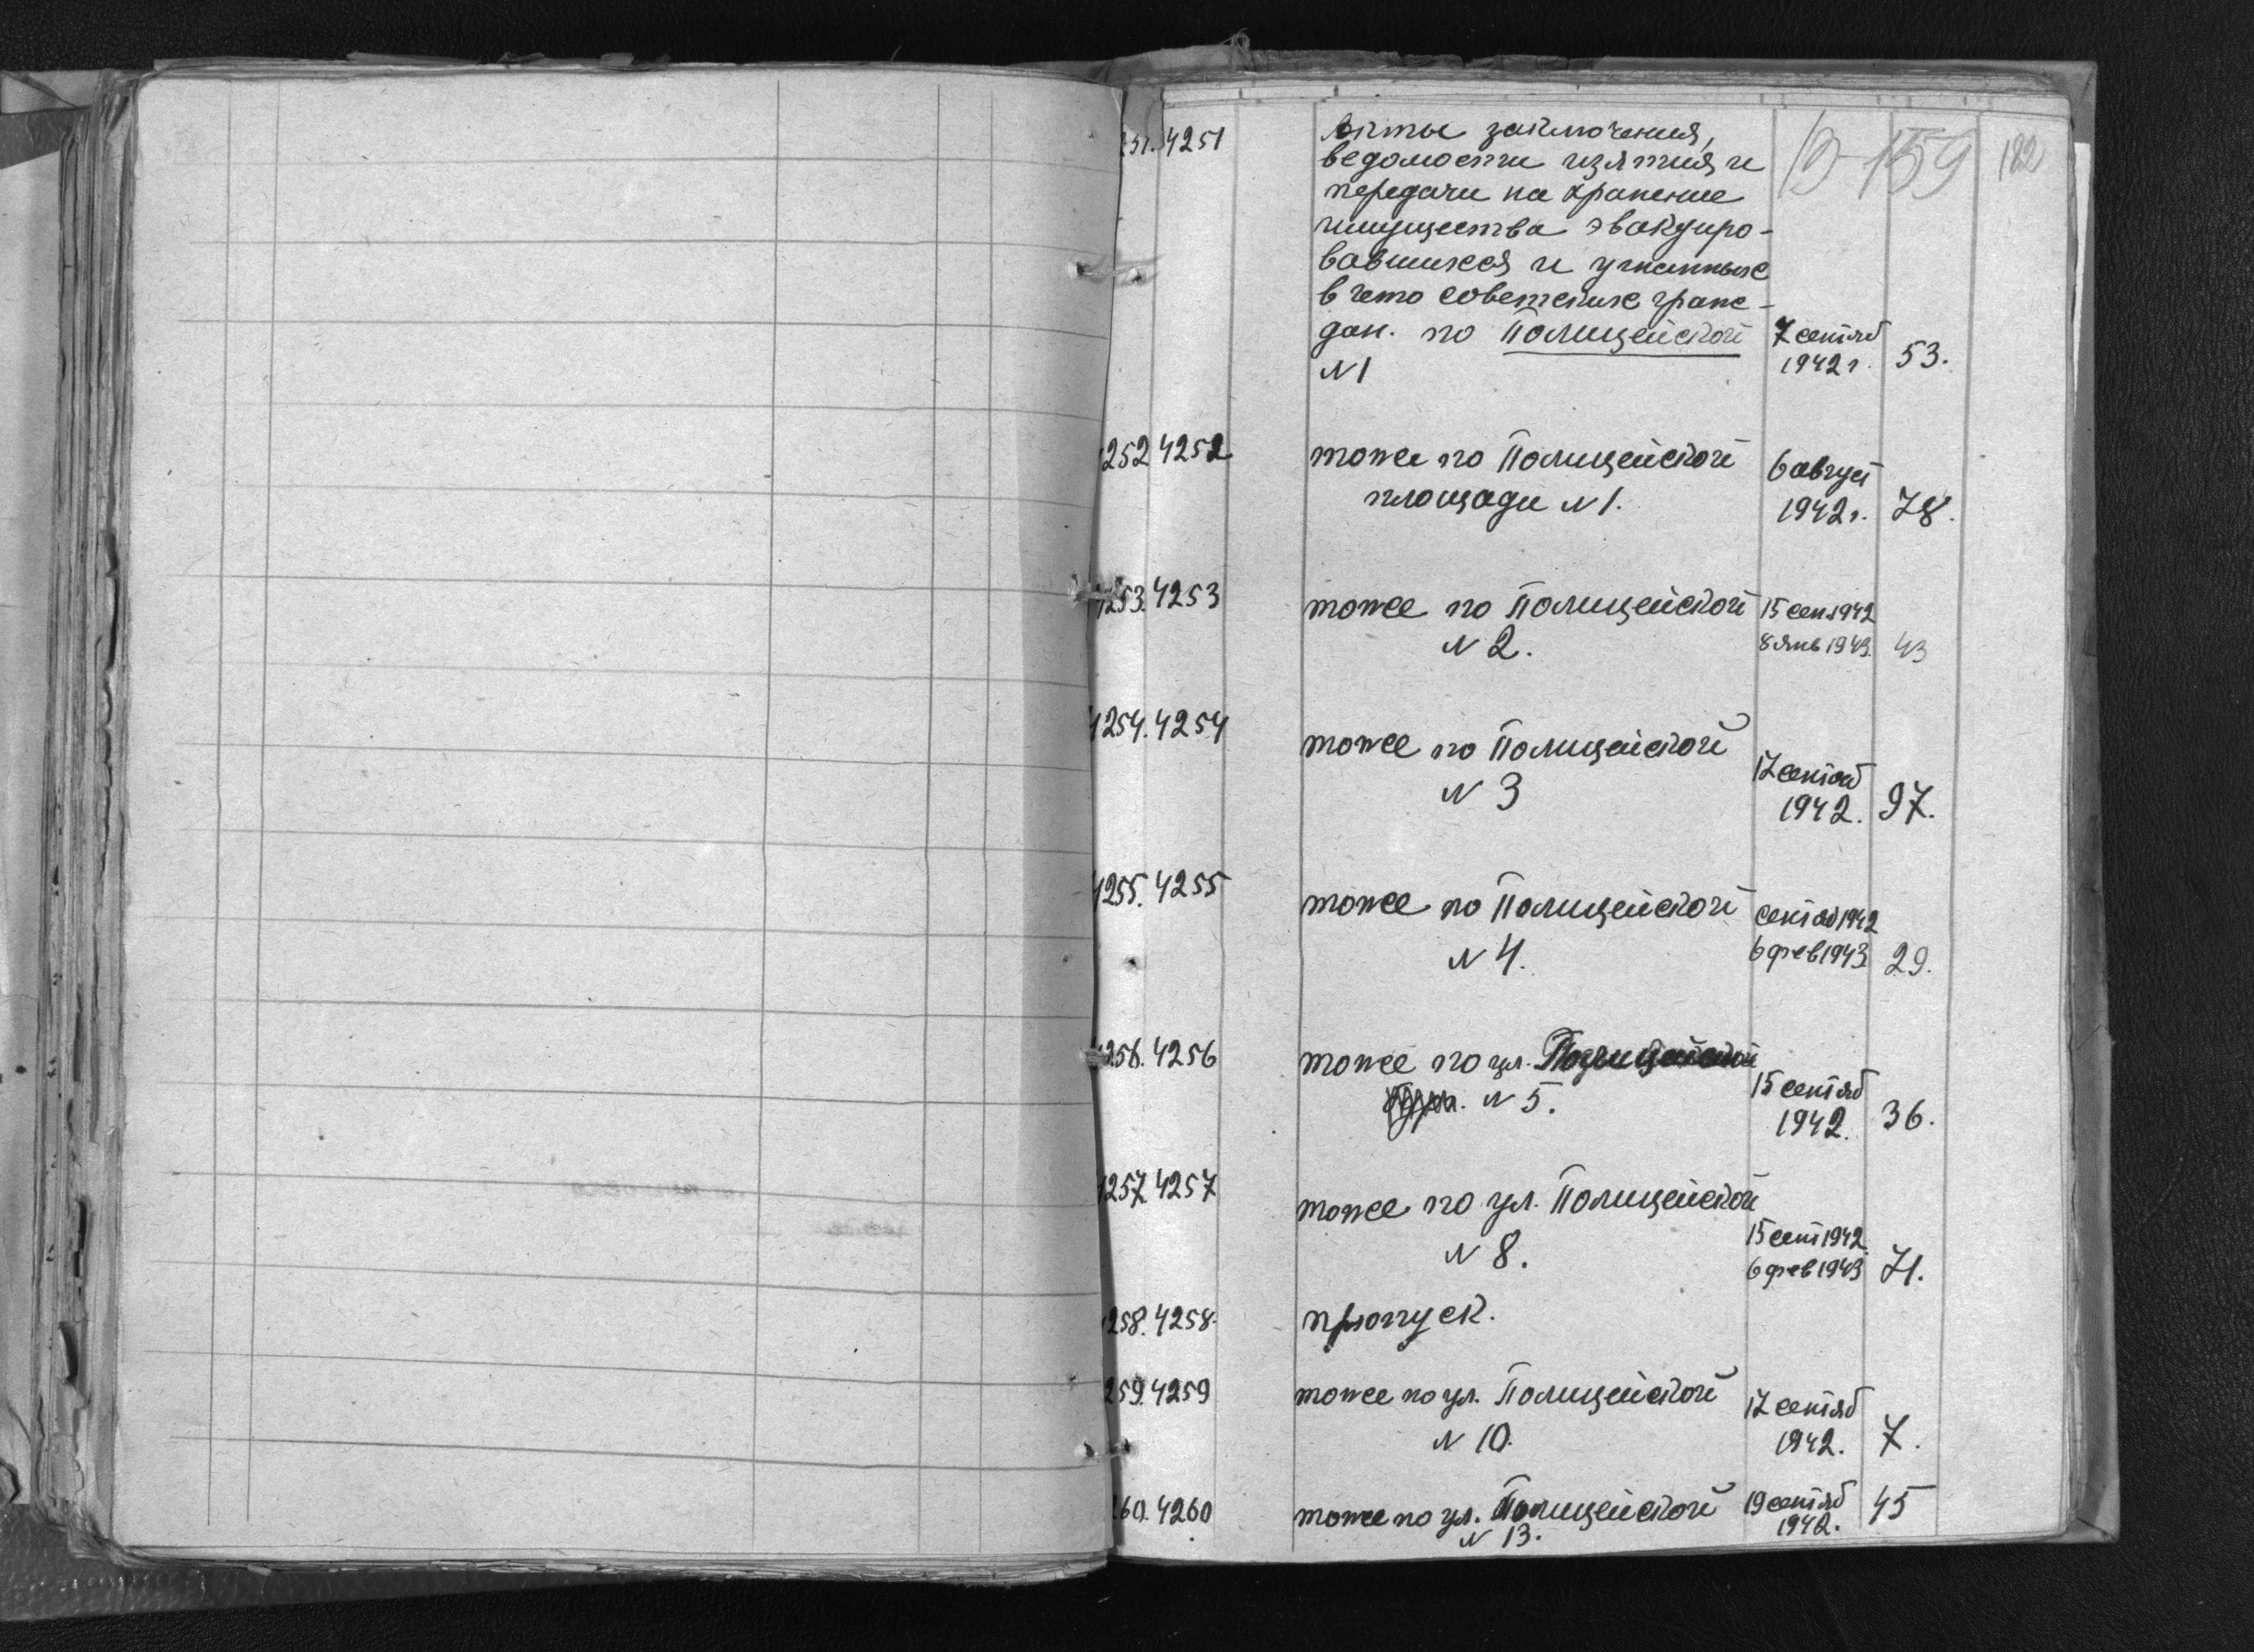 Р-159 182
51. 4251 Акты заключения,
ведомости изятия и
передачи на хранение
имущества эвакуиро-
вавшихся и угнанных
в гето советских граж-
дан. по Полицейской 7 сентяб
N 1 1942 г. 53.
4252 4252 тоже по Полицейской 6 август
площади N 1. 1942 г. 78.
4253. 4253 тоже по Полицейской 15 сен 1942
N 2. 8 янв 1943. 43
4254. 4254 тоже по Полицейской
N 3 17 сентяб
1942. 97.
4255. 4255 тоже по Полицейской сентяб 1942
N 4. 6 фев 1943 29.
4256. 4256 тоже по ул. Полицейской
N 5. 15 сентяб
1942. 36.
4257 4257 тоже по ул. Полицейской
N 8. 15 сент 1942.
6 фев 1943 71.
258. 4258. пропуск.
259. 4259 тоже по ул. Полицейской 17 сентяб
N 10. 1942. 7.
260. 4260 тоже по ул. Полицейской 19 сентяб 45
N 13. 1942.